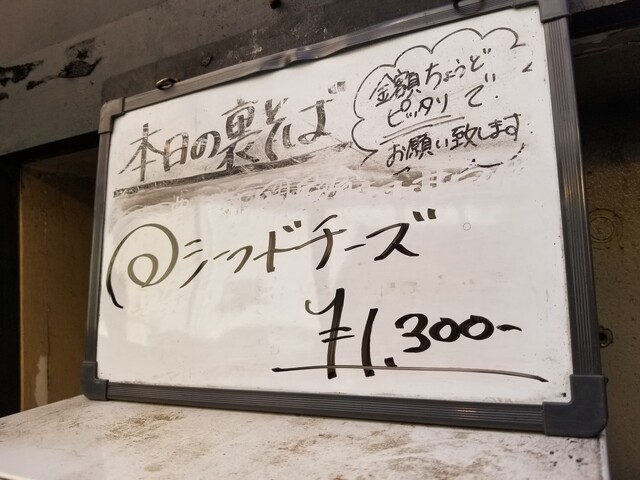 本日の裏そば
金額ちょうど
ピッタリで
お願い致します
◎シーフドチーズ
¥1,300-